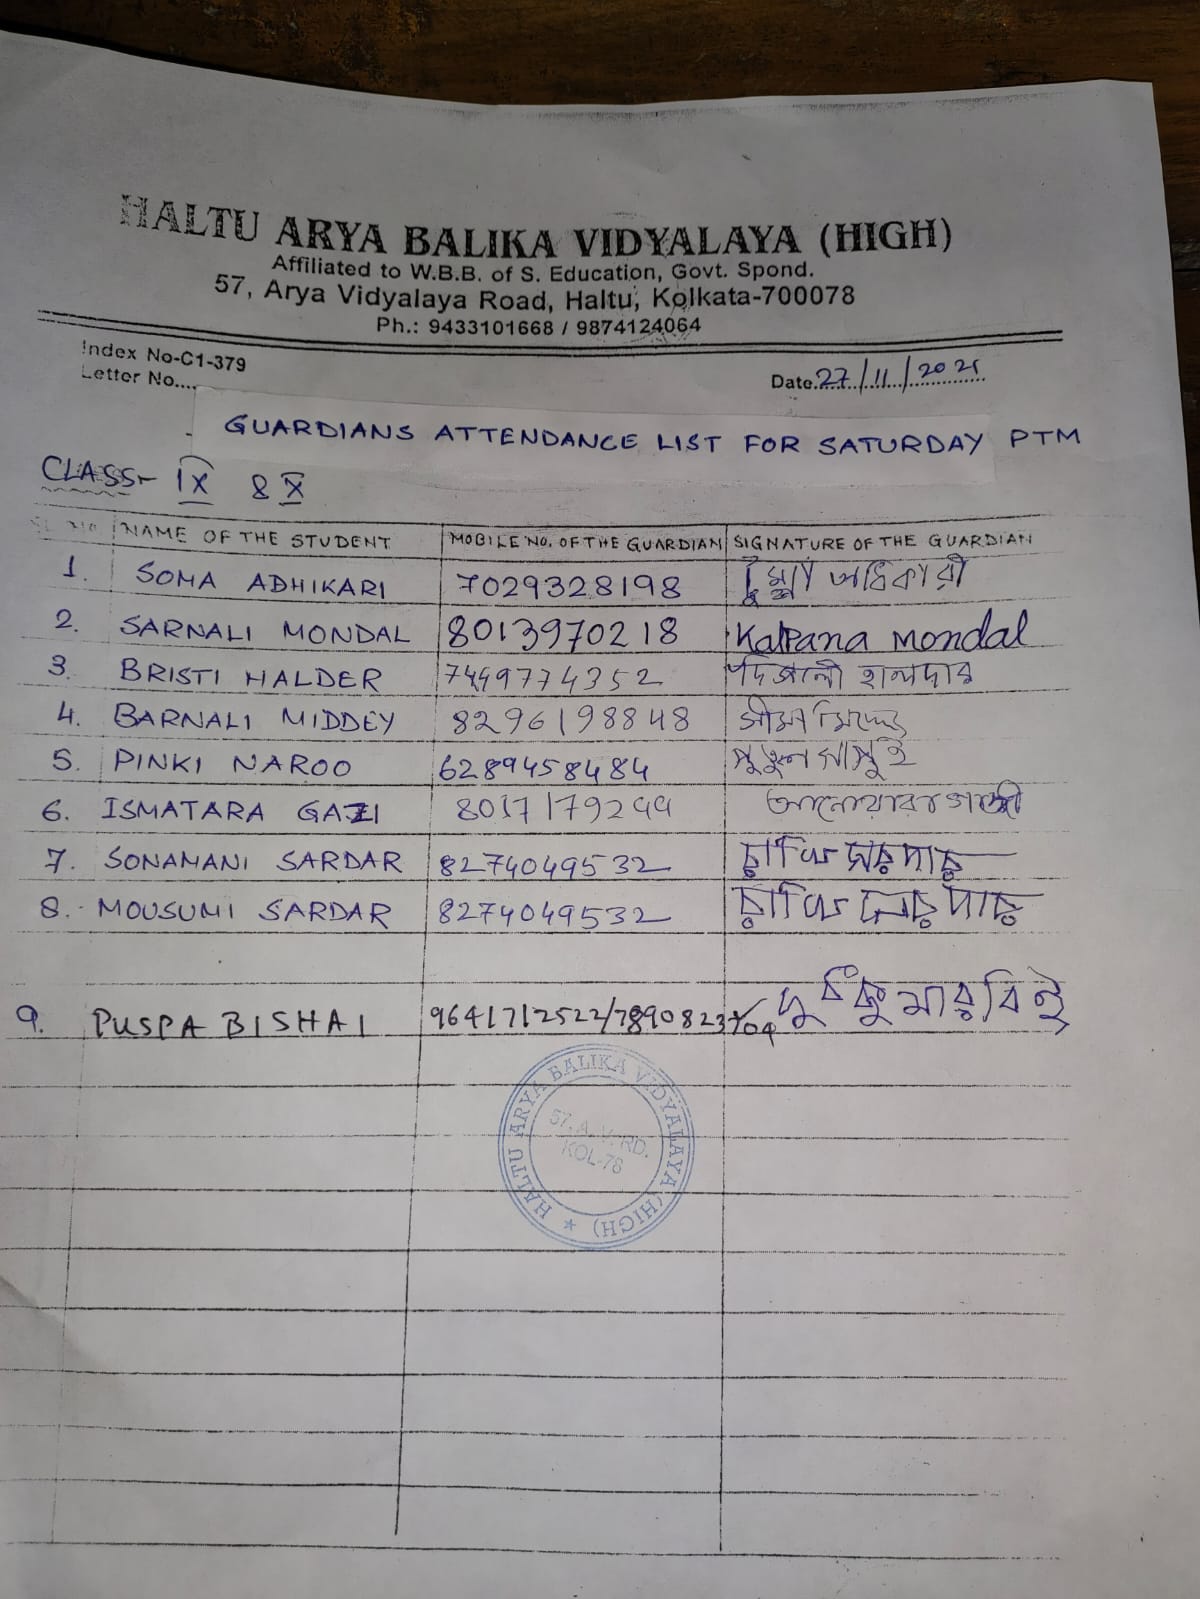 HALTU ARYA BALIKA VIDYALAYA (HIGH)
Affiliated to W.B.B. of S. Education, Govt. Spond.
57, Arya Vidyalaya Road, Haltu, Kolkata-700078
Ph.: 9433101668 / 9874124064
Index No-C1-379
Letter No....
Date.27/11/2021
GUARDIANS ATTENDANCE LIST FOR SATURDAY PTM
CLASS- IX & X
SL NO. NAME OF THE STUDENT MOBILE NO. OF THE GUARDIAN SIGNATURE OF THE GUARDIAN
1. SOMA ADHIKARI 7029328198 অধিকারী
2. SARNALI MONDAL 8013970218 Kalpana Mondal
3. BRISTI HALDER 7449774352 হালদার
4. BARNALI MIDDEY 8296198848 সীমা মিদ্দে
5. PINKI NAROO 6289458484 পুতুল
6. ISMATARA GAZI 8017179244 আনোয়ারা গাজী
7. SONAMANI SARDAR 8274049532 সরদার
8. MOUSUMI SARDAR 8274049532 সরদার
9. PUSPA BISHAI 9641712522/7890823704
HALTU ARYA BALIKA VIDYALAYA (HIGH) ★
57, A. V. RD.
KOL-78